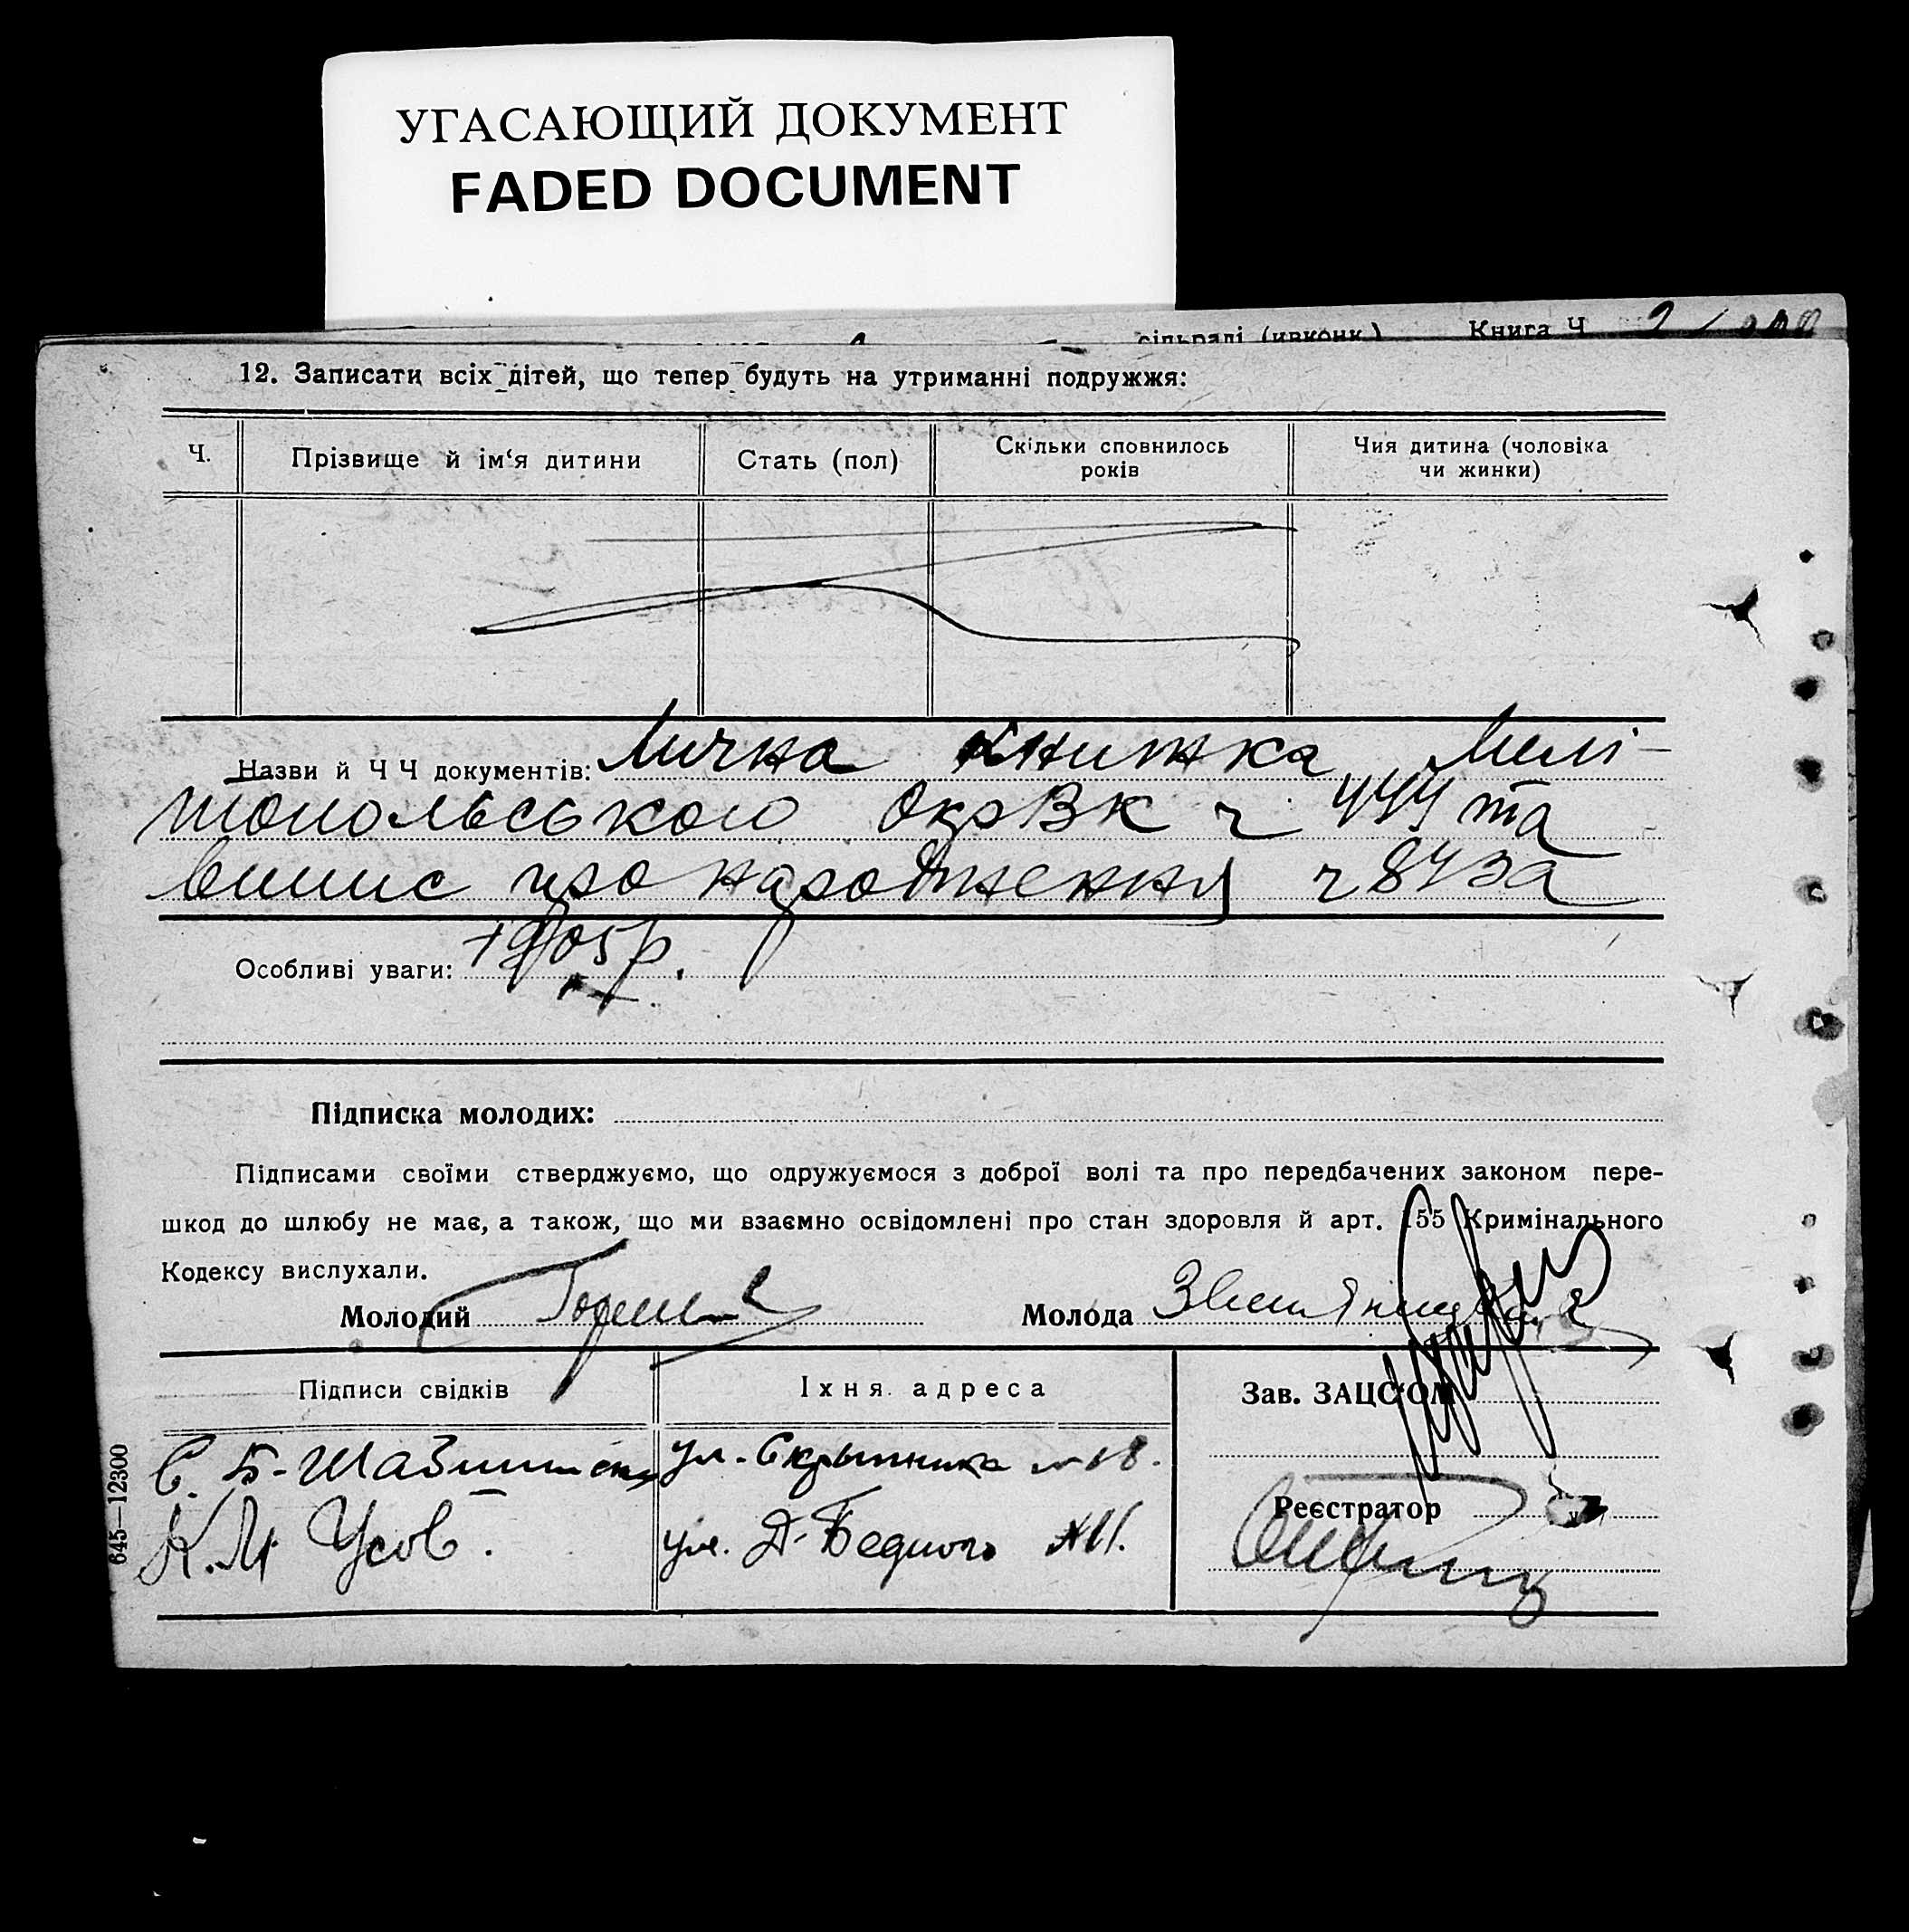 УГАСАЮЩИЙ ДОКУМЕНТ
FADED DOCUMENT
сільраді (ивконк.) Книга Ч
12. Записати всіх дітей, що тепер будуть на утриманні подружжя:
Ч. Прізвище й ім‘я дитини Стать (пол) Скільки сповнилось років Чия дитина (чоловіка чи жинки)
Назви й Ч Ч документів: Лична книжка Мелі-
топольського ОкрВК ч 444 та
випис про народження ч 843а
Особливі уваги: 1905р.
Підписка молодих:
Підписами своїми стверджуємо, що одружуємося з доброї волі та про передбачених законом пере-
шкод до шлюбу не має, а також, що ми взаємно освідомлені про стан здоровля й арт. 155 Кримінального
Кодексу вислухали.
Молодий Молода
Підписи свідків Їхня адреса Зав. ЗАЦС‘ОМ
С. Б. ул. Скрыпника № 18.
Реєстратор
К.М Усов. ул. Д-Бедного №11.
645—12300